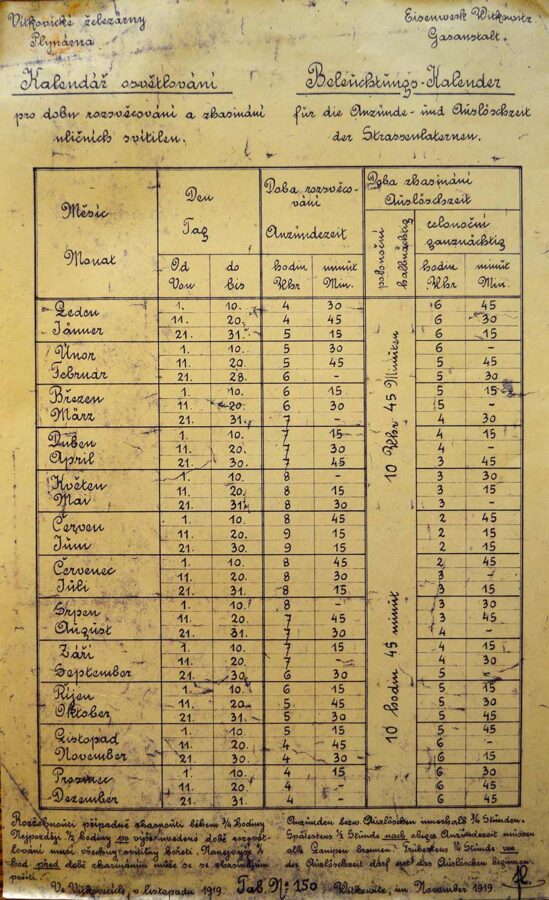 Vítkovické železárny
Plynárna
Eisenwerk Witkowitz
Gasanstalt.
Kalendář osvětlování
pro dobu rozsvěcování a zhasínání
uličních svítilen.
Beleuchtungs-Kalender
für die Anzünde- und Auslöschzeit
der Strassenlaternen.
Měsíc
Monat
Den
Tag
Od
Von
do
bis
Doba rozsvěco-
vání
Anzündezeit
hodin
Uhr
minut
Min.
Doba zhasínání
Auslöschzeit
polonoční
halbnächtig
celonoční
ganznächtig
hodin
Uhr
minut
Min.
10 Uhr 45 Minuten
10 hodin 45 minut
Leden 1. 10. 4 30 6 45
11. 20. 4 45 6 30
Jänner 21. 31. 5 15 6 15
Únor 1. 10. 5 30 6 -
11. 20. 5 45 5 45
Februar 21. 28. 6 - 5 30
Březen 1. 10. 6 15 5 15
11. 20. 6 30 5 -
März 21. 31. 7 - 4 30
Duben 1. 10. 7 15 4 15
11. 20. 7 30 4 -
April 21. 30. 7 45 3 45
Květen 1. 10. 8 - 3 30
11. 20. 8 15 3 15
Mai 21. 31. 8 30 3 -
Červen 1. 10. 8 45 2 45
11. 20. 9 15 2 15
Juni 21. 30. 9 15 2 15
Červenec 1. 10. 8 45 2 45
11. 20. 8 30 3 -
Juli 21. 31. 8 15 3 15
Srpen 1. 10. 8 - 3 30
11. 20. 7 45 3 45
August 21. 31. 7 30 4 -
Září 1. 10. 7 15 4 15
11. 20. 7 - 4 30
September 21. 30. 6 30 5 -
Říjen 1. 10. 6 15 5 15
11. 20. 5 45 5 30
Oktober 21. 31. 5 30 5 45
Listopad 1. 10. 5 15 5 45
11. 20. 4 45 6 -
November 21. 30. 4 30 6 15
Prosinec 1. 10. 4 15 6 30
11. 20. 4 - 6 45
Dezember 21. 31. 4 - 6 45
Rozžehnouti případně zhasnouti během 3/4 hodiny
Nejpozději 1/2 hodiny po výše uvedené době rozsvět-
lování musí všechny svítilny hořeti. Nanejvýš 1/4
hod před dobou zhasínání může se se zhasínáním
počíti.
Anzünden bezw. Auslöschen innerhalb 3/4 Stunden.
Spätestens 1/2 Stunde nach obiger Anzündezeit müssen
alle Lampen brennen. Frühestens 1/4 Stunde vor
der Auslöschzeit darf erst das Auslöschen beginnen.
Ve Vítkovicích, v listopadu 1919. Tab. No: 150 Witkowitz, im November 1919.